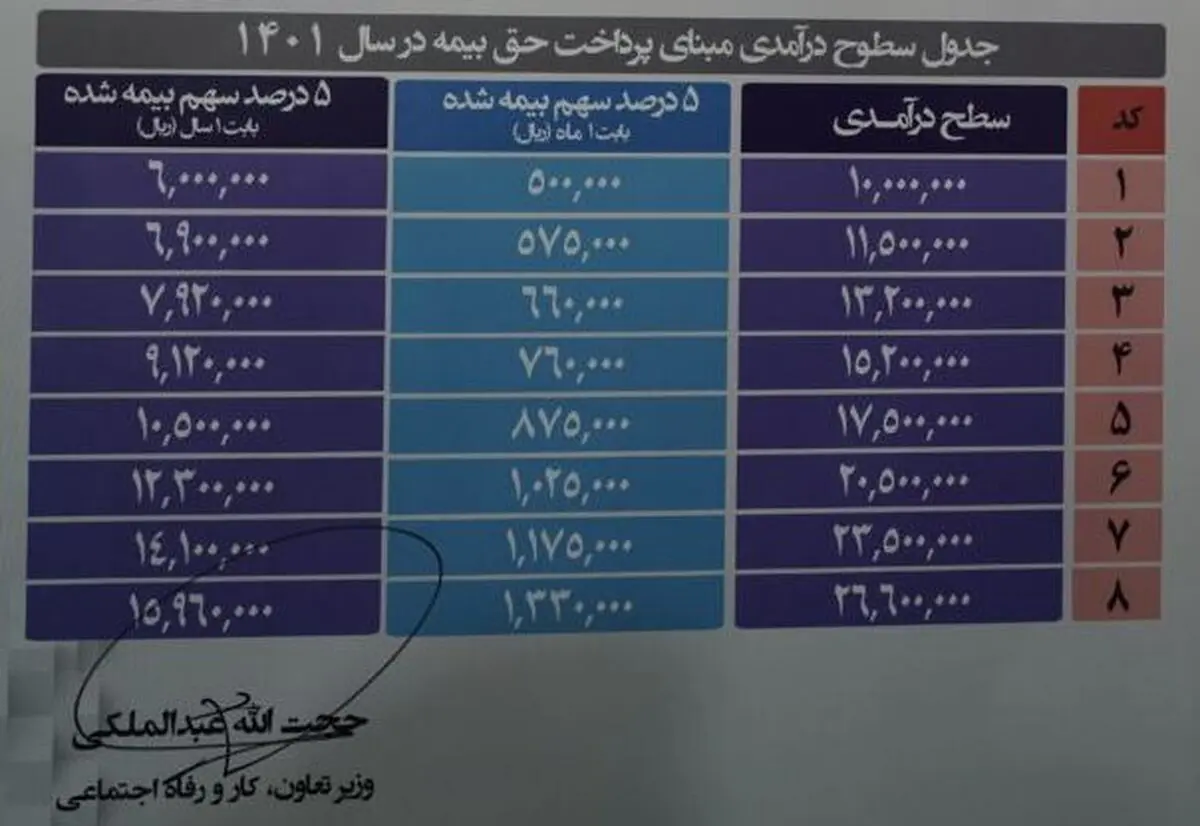 جدول سطوح درآمدی مبنای پرداخت حق بیمه در سال ۱۴۰۱
کد سطح درآمدی ۵ درصد سهم بیمه شده بابت ۱ ماه (ریال) ۵ درصد سهم بیمه شده بابت ۱ سال (ریال)
۱ ۱۰,۰۰۰,۰۰۰ ۵۰۰,۰۰۰ ۶,۰۰۰,۰۰۰
۲ ۱۱,۵۰۰,۰۰۰ ۵۷۵,۰۰۰ ۶,۹۰۰,۰۰۰
۳ ۱۳,۲۰۰,۰۰۰ ۶۶۰,۰۰۰ ۷,۹۲۰,۰۰۰
۴ ۱۵,۲۰۰,۰۰۰ ۷۶۰,۰۰۰ ۹,۱۲۰,۰۰۰
۵ ۱۷,۵۰۰,۰۰۰ ۸۷۵,۰۰۰ ۱۰,۵۰۰,۰۰۰
۶ ۲۰,۵۰۰,۰۰۰ ۱,۰۲۵,۰۰۰ ۱۲,۳۰۰,۰۰۰
۷ ۲۳,۵۰۰,۰۰۰ ۱,۱۷۵,۰۰۰ ۱۴,۱۰۰,۰۰۰
۸ ۲۶,۶۰۰,۰۰۰ ۱,۳۳۰,۰۰۰ ۱۵,۹۶۰,۰۰۰
حجت الله عبدالملکی
وزیر تعاون، کار و رفاه اجتماعی